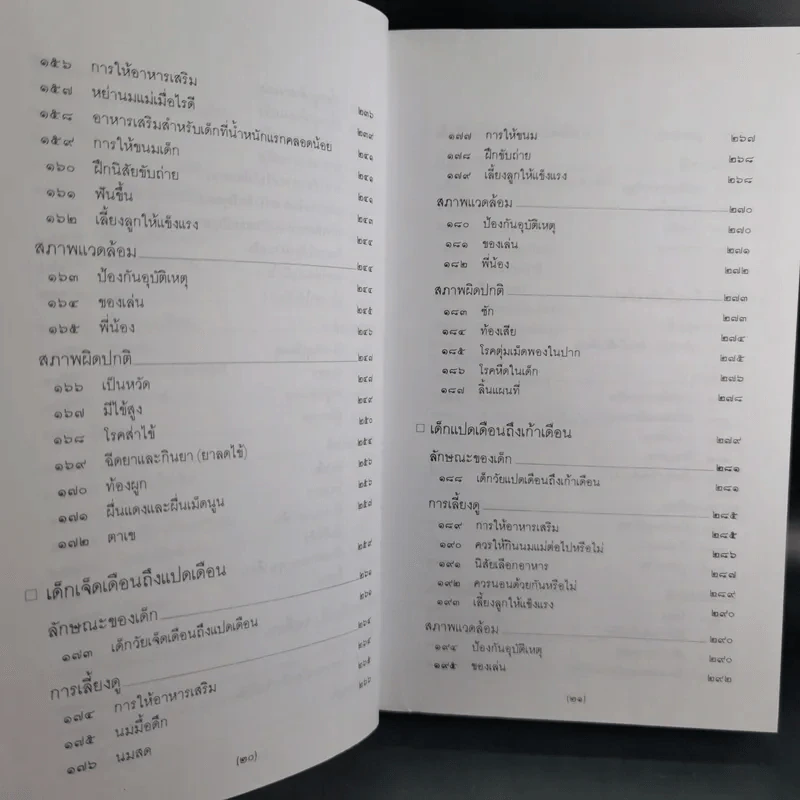 ๑๕๖ การให้อาหารเสริม ๒๓๖
๑๕๗ หย่านมแม่เมื่อไรดี ๒๓๙
๑๕๘ อาหารเสริมสำหรับเด็กที่น้ำหนักแรกคลอดน้อย ๒๔๑
๑๕๙ การให้ขนมเด็ก ๒๔๑
๑๖๐ ฝึกนิสัยขับถ่าย ๒๔๑
๑๖๑ ฟันขึ้น ๒๔๓
๑๖๒ เลี้ยงลูกให้แข็งแรง ๒๔๔
สภาพแวดล้อม ๒๔๔
๑๖๓ ป้องกันอุบัติเหตุ ๒๔๔
๑๖๔ ของเล่น ๒๔๕
๑๖๕ พี่น้อง ๒๔๖
สภาพผิดปกติ ๒๔๘
๑๖๖ เป็นหวัด ๒๔๘
๑๖๗ มีไข้สูง ๒๔๙
๑๖๘ โรคส่าไข้ ๒๕๐
๑๖๙ ฉีดยาและกินยา (ยาลดไข้) ๒๕๔
๑๗๐ ท้องผูก ๒๕๖
๑๗๑ ผื่นแดงและผื่นเม็ดนูน ๒๕๖
๑๗๒ ตาเข ๒๕๘
□ เด็กเจ็ดเดือนถึงแปดเดือน ๒๕๙
ลักษณะของเด็ก ๒๖๑
๑๗๓ เด็กวัยเจ็ดเดือนถึงแปดเดือน ๒๖๑
การเลี้ยงดู ๒๖๔
๑๗๔ การให้อาหารเสริม ๒๖๔
๑๗๕ นมมื้อดึก ๒๖๕
๑๗๖ นมสด ๒๖๖
(๒๐)
๑๗๗ การให้ขนม ๒๖๗
๑๗๘ ฝึกขับถ่าย ๒๖๘
๑๗๙ เลี้ยงลูกให้แข็งแรง ๒๖๘
สภาพแวดล้อม ๒๗๐
๑๘๐ ป้องกันอุบัติเหตุ ๒๗๐
๑๘๑ ของเล่น ๒๗๑
๑๘๒ พี่น้อง ๒๗๒
สภาพผิดปกติ ๒๗๓
๑๘๓ ชัก ๒๗๓
๑๘๔ ท้องเสีย ๒๗๔
๑๘๕ โรคตุ่มเม็ดพองในปาก ๒๗๕
๑๘๖ โรคหืดในเด็ก ๒๗๖
๑๘๗ ลิ้นแผนที่ ๒๗๘
□ เด็กแปดเดือนถึงเก้าเดือน ๒๗๙
ลักษณะของเด็ก ๒๘๑
๑๘๘ เด็กวัยแปดเดือนถึงเก้าเดือน ๒๘๑
การเลี้ยงดู ๒๘๕
๑๘๙ การให้อาหารเสริม ๒๘๕
๑๙๐ ควรให้กินนมแม่ต่อไปหรือไม่ ๒๘๖
๑๙๑ นิสัยเลือกอาหาร ๒๘๗
๑๙๒ ควรนอนด้วยกันหรือไม่ ๒๘๙
๑๙๓ เลี้ยงลูกให้แข็งแรง ๒๙๐
สภาพแวดล้อม ๒๙๐
๑๙๔ ป้องกันอุบัติเหตุ ๒๙๐
๑๙๕ ของเล่น ๒๙๒
(๒๑)